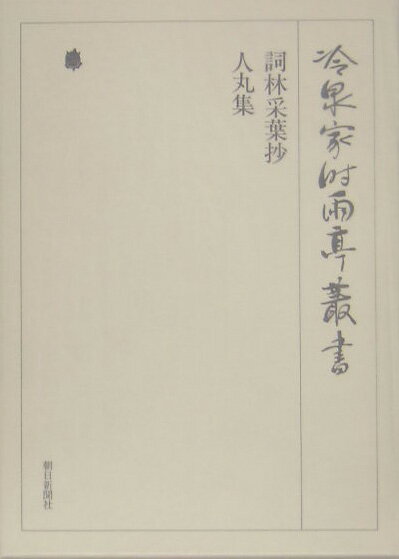 冷泉家時雨亭叢書
詞林采葉抄
人丸集
朝日新聞社